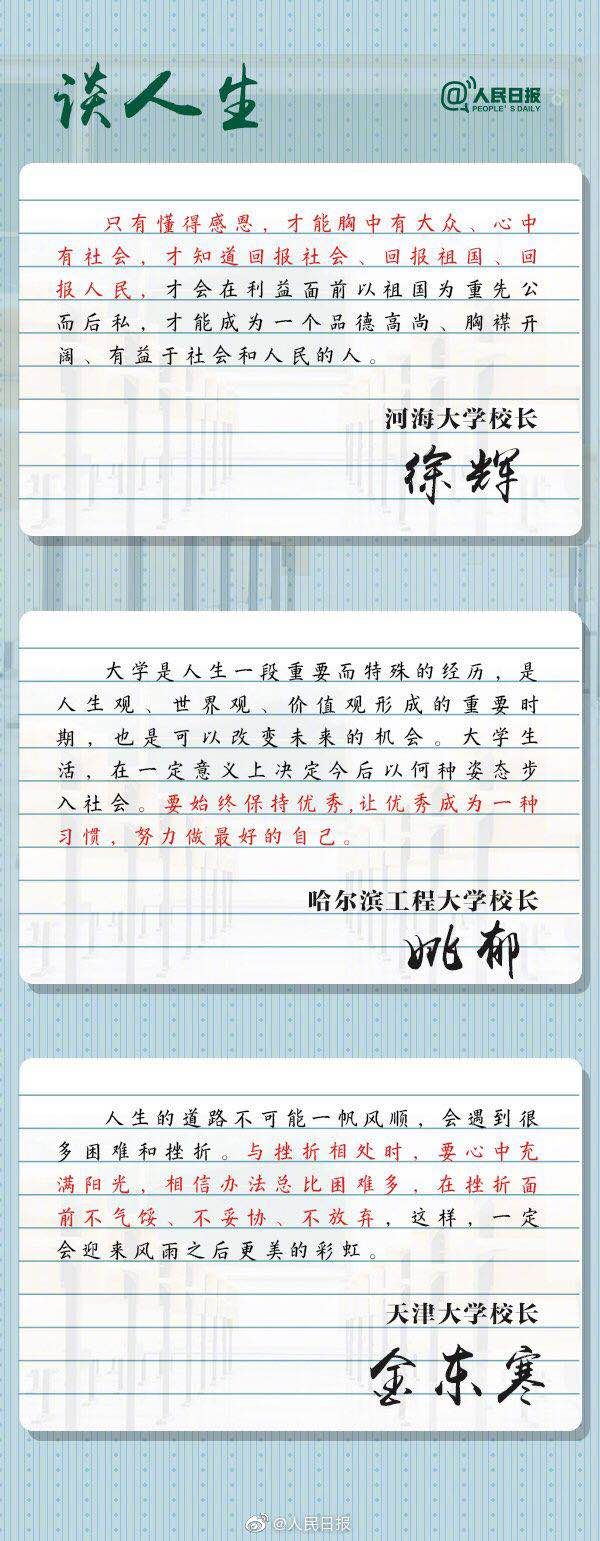 谈人生
@人民日报
PEOPLE'S DAILY
只有懂得感恩，才能胸中有大众、心中
有社会，才知道回报社会、回报祖国、回
报人民，才会在利益面前以祖国为重先公
而后私，才能成为一个品德高尚、胸襟开
阔、有益于社会和人民的人。
河海大学校长
徐辉
大学是人生一段重要而特殊的经历，是
人生观、世界观、价值观形成的重要时
期，也是可以改变未来的机会。大学生
活，在一定意义上决定今后以何种姿态步
入社会。要始终保持优秀,让优秀成为一种
习惯，努力做最好的自己。
哈尔滨工程大学校长
姚郁
人生的道路不可能一帆风顺，会遇到很
多困难和挫折。与挫折相处时，要心中充
满阳光，相信办法总比困难多，在挫折面
前不气馁、不妥协、不放弃，这样，一定
会迎来风雨之后更美的彩虹。
天津大学校长
金东寒
@人民日报